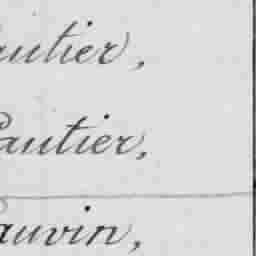 autier,
Gautier,
auvin,